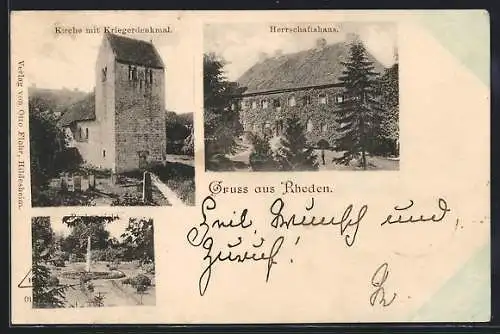 Kirche mit Kriegerdenkmal.
Herrschaftshaus.
Verlag von Otto Flohr, Hildesheim.
Gruss aus Rheden.
Heil, Wunsch und
Zuruf!